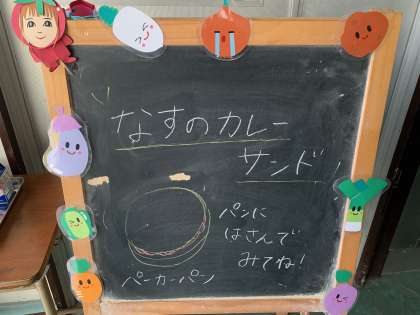 なすのカレー
サンド
パンに
はさんで
みてね!
パーカーパン